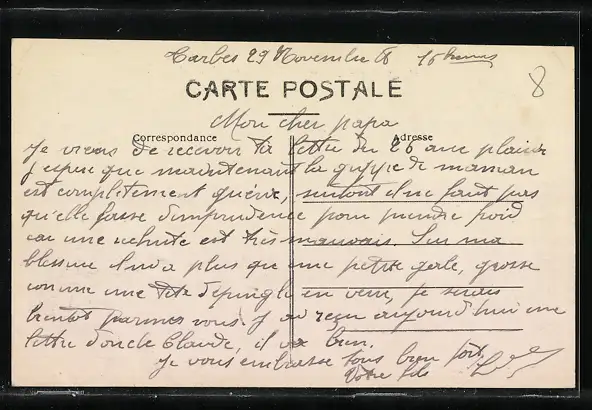 Tarbes 29 Novembre 15 heures
8
CARTE POSTALE
Mon cher papa
Correspondance
Adresse
Je viens de recevoir ta lettre du 26 avec plaisir
j'espère que maintenant la grippe de maman
est complètement guérie, surtout il ne faut pas
qu'elle fasse d'imprudence pour prendre froid
car une rechute est très mauvais. Sur ma
blessure il n'y a plus que une petite gale, grosse
comme une tête d'épingle en verre, je serais
bientôt parmi vous. J'ai reçu aujourd'hui une
lettre d'oncle Claude, il va bien.
Je vous embrasse tous bien fort.
Votre fils